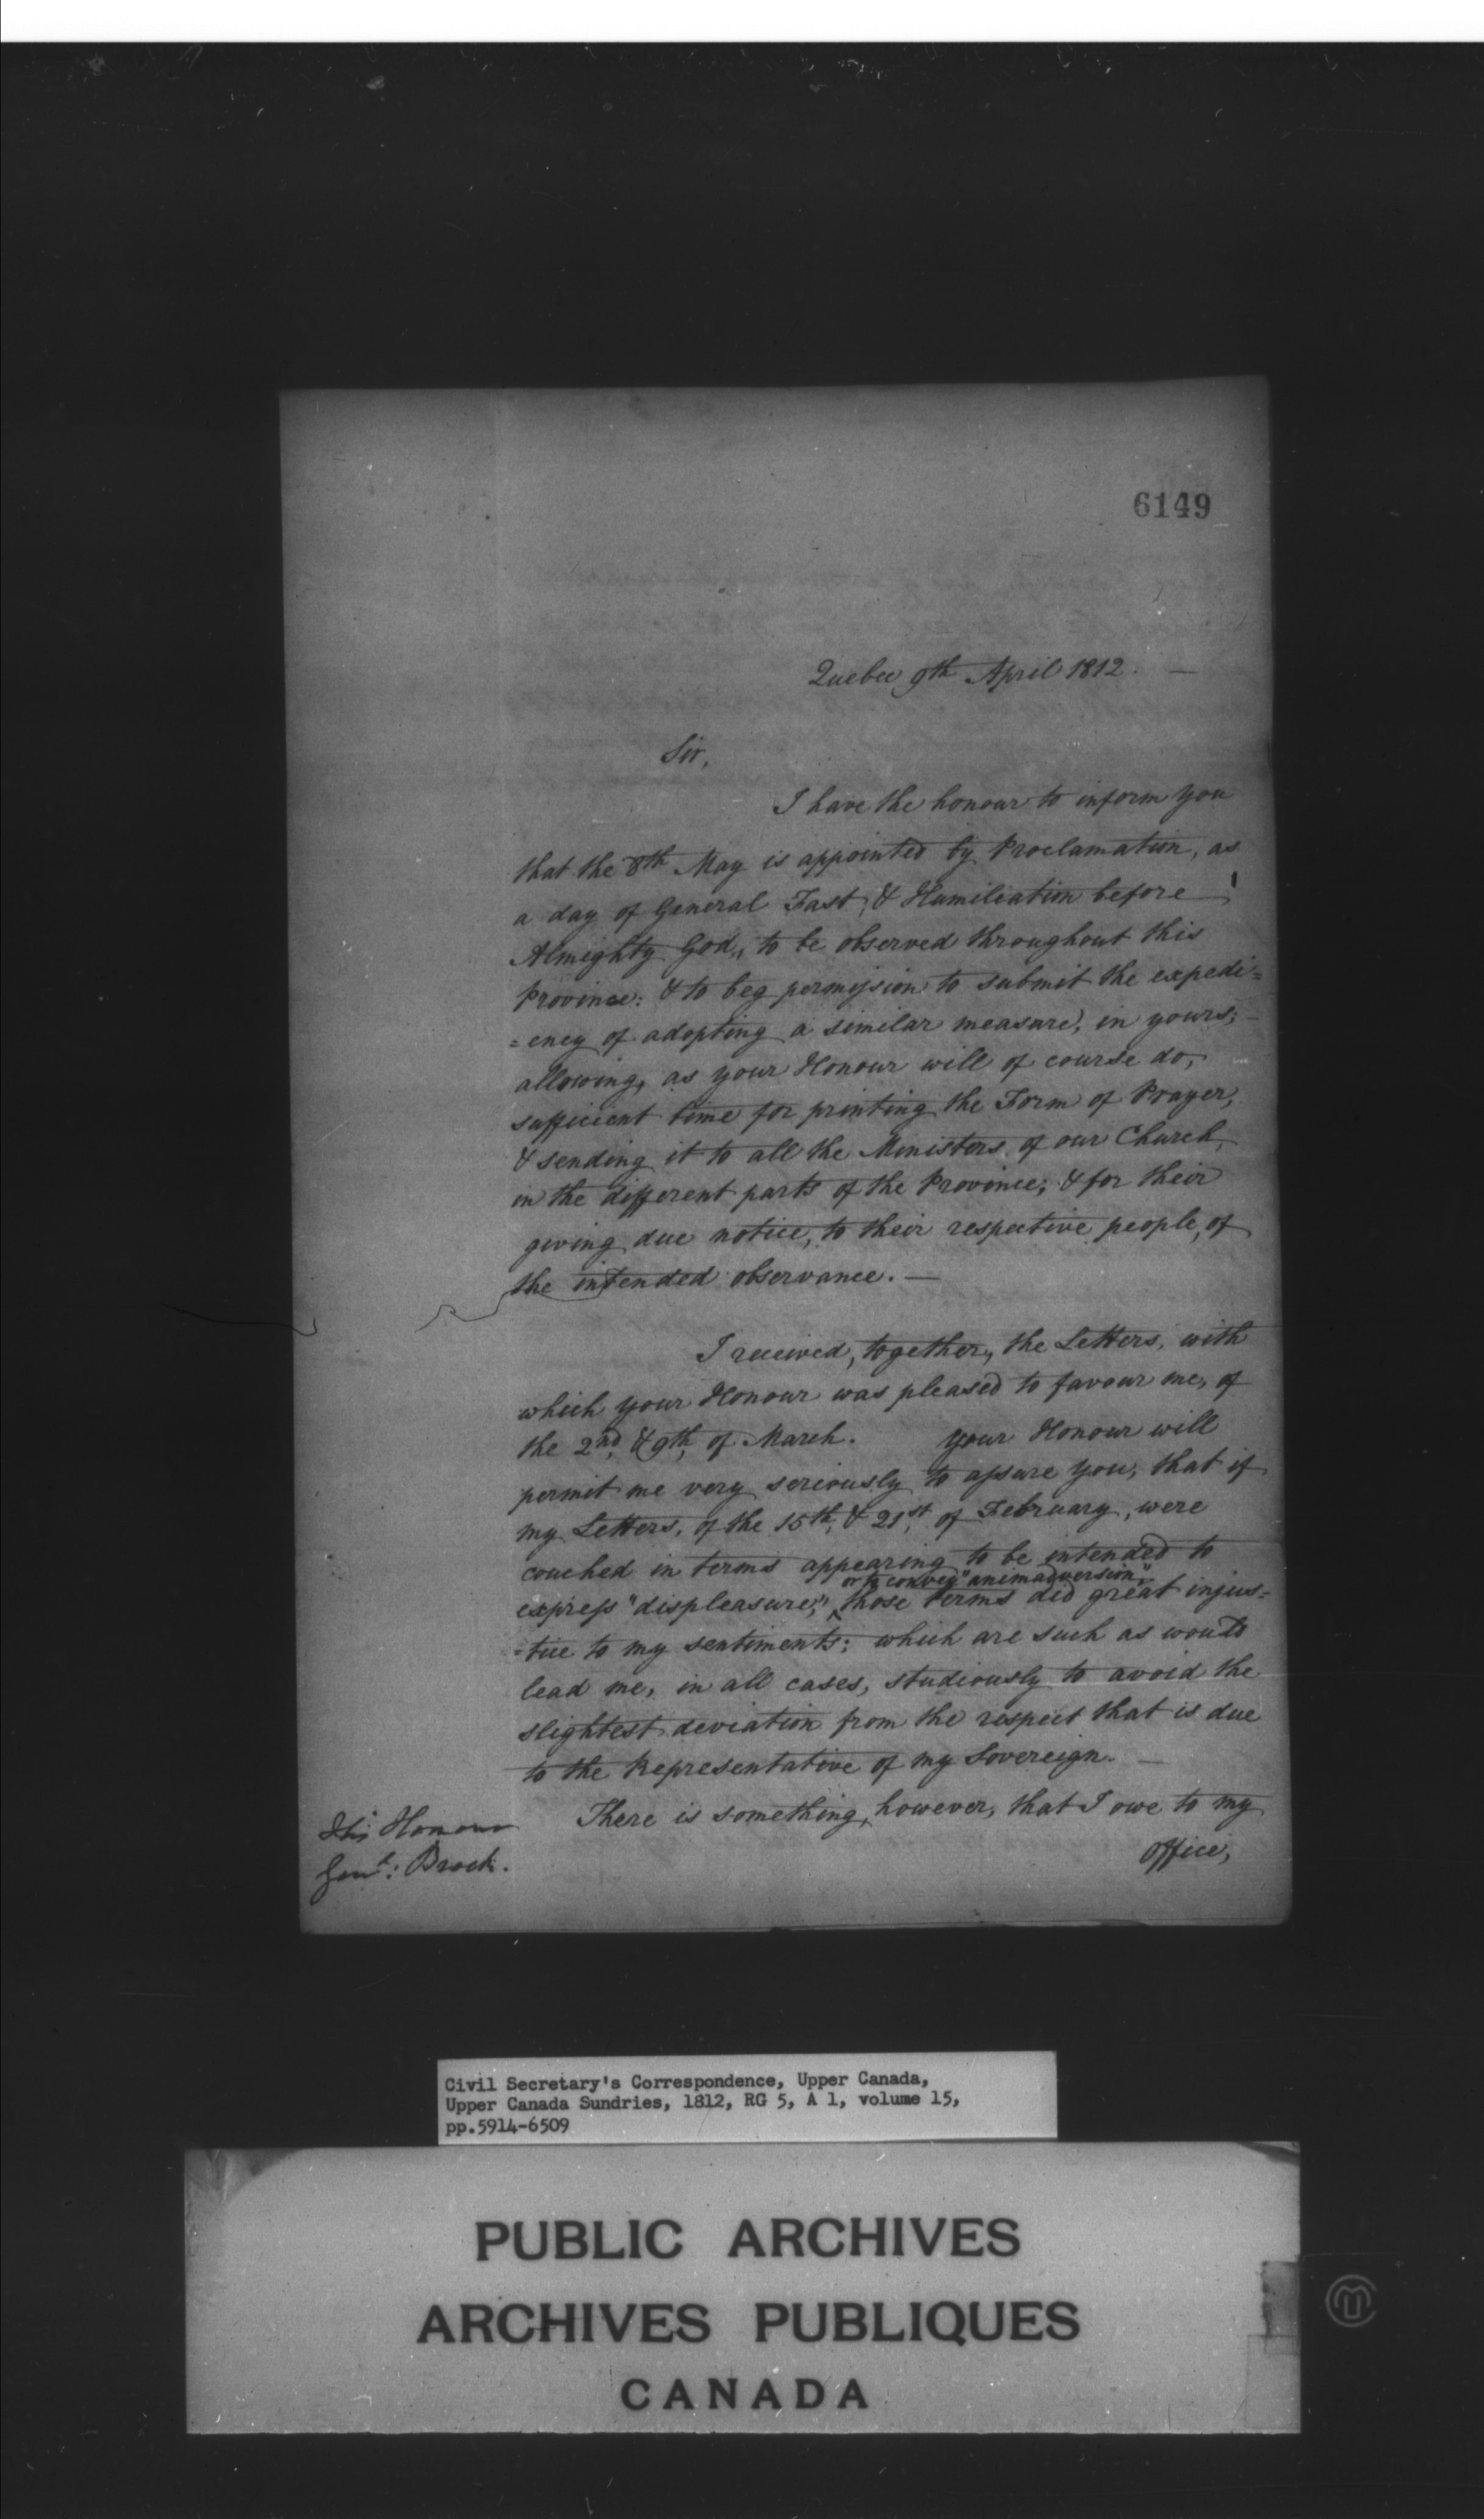 6149
Quebec 9th April 1812. —
Sir,
I have the honour to inform you
that the 8th May is appointed by Proclamation, as
a day of General Fast, & Humiliation before
Almighty God, to be observed throughout this
Province: & to beg permission to submit the expedi=
=ency of adopting a similar measure, in yours; —
allowing, as your Honour will of course do,
sufficient time for printing the Form of Prayer,
& sending it to all the Ministers of our Church,
in the different parts of the Province; & for their
giving due notice, to their respective people, of
the intended observance. —
I received, together, the Letters, with
which your Honour was pleased to favour me, of
the 2nd, & 9th, of March. Your Honour will
permit me very seriously to assure you, that if
my Letters, of the 15th, & 21st, of February, were
couched in terms appearing to be intended to
or to convey "animadversion",
express "displeasure," ^ those terms did great injus=
=tice to my sentiments; which are such as would
lead me, in all cases, studiously to avoid the
slightest deviation from the respect that is due
to the Representative of my Sovereign. —
There is something, however, that I owe to my
office,
His Honour
Genl: Brock.
Civil Secretary's Correspondence, Upper Canada,
Upper Canada Sundries, 1812, RG 5, A 1, volume 15,
pp.5914-6509
PUBLIC ARCHIVES
ARCHIVES PUBLIQUES
CANADA